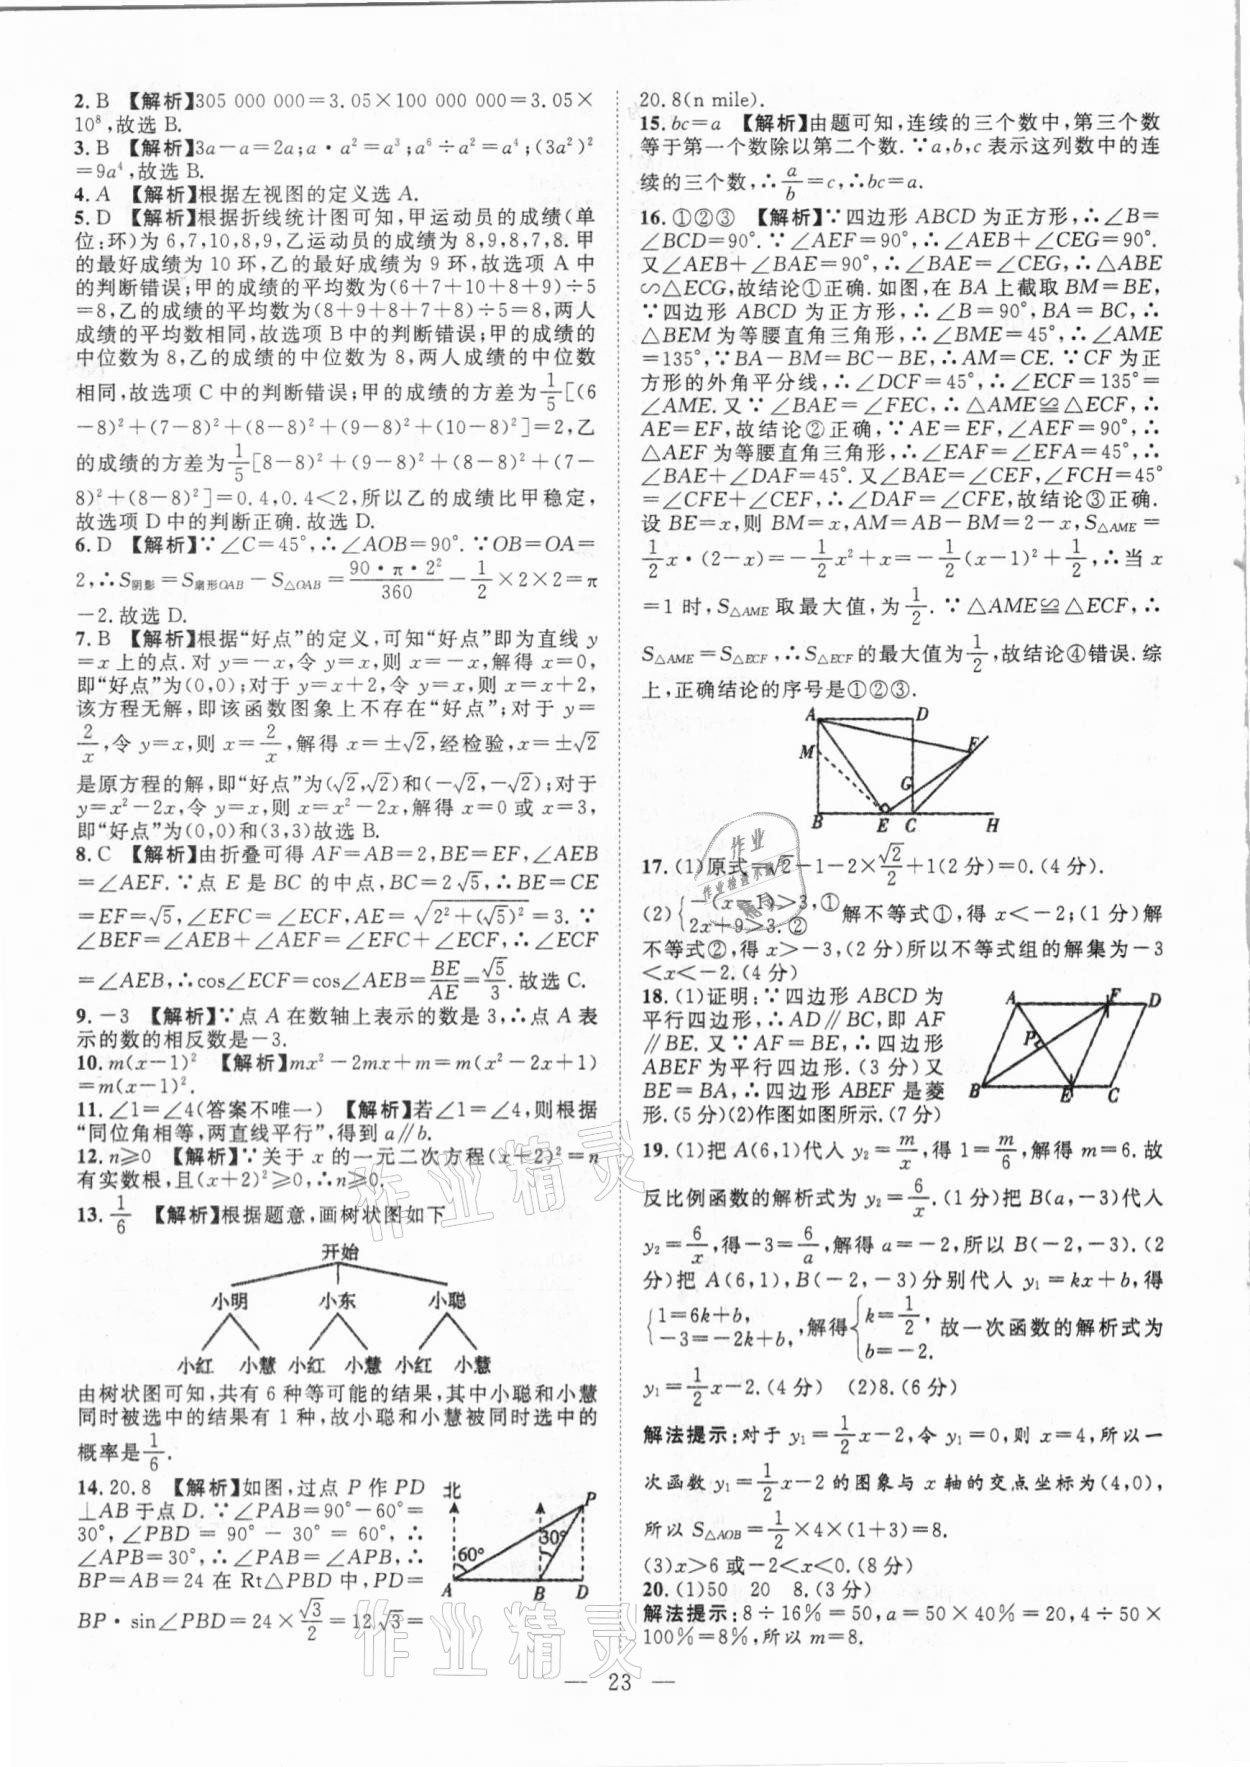 2. B 【解析】305 000 000=3.05×100 000 000=3.05×
10⁸,故选 B.
3. B 【解析】3a-a=2a;a·a²=a³;a⁶÷a²=a⁴;(3a²)²
=9a⁴,故选 B.
4. A 【解析】根据左视图的定义选 A.
5. D 【解析】根据折线统计图可知,甲运动员的成绩(单
位:环)为 6,7,10,8,9,乙运动员的成绩为 8,9,8,7,8.甲
的最好成绩为 10 环,乙的最好成绩为 9 环,故选项 A 中
的判断错误;甲的成绩的平均数为(6+7+10+8+9)÷5
=8,乙的成绩的平均数为(8+9+8+7+8)÷5=8,两人
成绩的平均数相同,故选项 B 中的判断错误;甲的成绩的
中位数为 8,乙的成绩的中位数为 8,两人成绩的中位数
相同,故选项 C 中的判断错误;甲的成绩的方差为1/5[(6
-8)²+(7-8)²+(8-8)²+(9-8)²+(10-8)²]=2,乙
的成绩的方差为1/5[8-8)²+(9-8)²+(8-8)²+(7-
8)²+(8-8)²]=0.4,0.4<2,所以乙的成绩比甲稳定,
故选项 D 中的判断正确.故选 D.
6. D 【解析】∵∠C=45°,∴∠AOB=90°.∵OB=OA=
2,∴S阴影=S扇形OAB-S△OAB=90·π·2²/360-1/2×2×2=π
-2.故选 D.
7. B 【解析】根据“好点”的定义,可知“好点”即为直线 y
=x 上的点.对 y=-x,令 y=x,则 x=-x,解得 x=0,
即“好点”为(0,0);对于 y=x+2,令 y=x,则 x=x+2,
该方程无解,即该函数图象上不存在“好点”;对于 y=
2/x,令 y=x,则 x=2/x,解得 x=±√2,经检验,x=±√2
是原方程的解,即“好点”为(√2,√2)和(-√2,-√2);对于
y=x²-2x,令 y=x,则 x=x²-2x,解得 x=0 或 x=3,
即“好点”为(0,0)和(3,3)故选 B.
8. C 【解析】由折叠可得 AF=AB=2,BE=EF,∠AEB
=∠AEF.∵点 E 是 BC 的中点,BC=2√5,∴BE=CE
=EF=√5,∠EFC=∠ECF,AE=√(2²+(√5)²)=3.∵
∠BEF=∠AEB+∠AEF=∠EFC+∠ECF,∴∠ECF
=∠AEB,∴cos∠ECF=cos∠AEB=BE/AE=√5/3.故选 C.
9. -3 【解析】∵点 A 在数轴上表示的数是 3,∴点 A 表
示的数的相反数是-3.
10. m(x-1)² 【解析】mx²-2mx+m=m(x²-2x+1)
=m(x-1)².
11. ∠1=∠4(答案不唯一) 【解析】若∠1=∠4,则根据
“同位角相等,两直线平行”,得到 a∥b.
12. n≥0 【解析】∵关于 x 的一元二次方程(x+2)²=n
有实数根,且(x+2)²≥0,∴n≥0.
13. 1/6 【解析】根据题意,画树状图如下
开始
小明 小东 小聪
小红 小慧 小红 小慧 小红 小慧
由树状图可知,共有 6 种等可能的结果,其中小聪和小慧
同时被选中的结果有 1 种,故小聪和小慧被同时选中的
概率是1/6.
14. 20.8 【解析】如图,过点 P 作 PD
⊥AB 于点 D.∵∠PAB=90°-60°=
30°,∠PBD=90°-30°=60°,∴
∠APB=30°,∴∠PAB=∠APB,∴
BP=AB=24 在 Rt△PBD 中,PD=
BP·sin∠PBD=24×√3/2=12√3=
北
P
60°
30°
A B D
20.8(n mile).
15. bc=a 【解析】由题可知,连续的三个数中,第三个数
等于第一个数除以第二个数.∵a,b,c 表示这列数中的连
续的三个数,∴a/b=c,∴bc=a.
16. ①②③ 【解析】∵四边形 ABCD 为正方形,∴∠B=
∠BCD=90°.∵∠AEF=90°,∴∠AEB+∠CEG=90°.
又∠AEB+∠BAE=90°,∴∠BAE=∠CEG,∴△ABE
∽△ECG,故结论①正确.如图,在 BA 上截取 BM=BE,
∵四边形 ABCD 为正方形,∴∠B=90°,BA=BC,∴
△BEM 为等腰直角三角形,∴∠BME=45°,∴∠AME=
135°,∵BA-BM=BC-BE,∴AM=CE.∵CF 为正
方形的外角平分线,∴∠DCF=45°,∴∠ECF=135°=
∠AME.又∵∠BAE=∠FEC,∴△AME≌△ECF,∴
AE=EF,故结论②正确,∵AE=EF,∠AEF=90°,∴
△AEF 为等腰直角三角形,∴∠EAF=∠EFA=45°,∴
∠BAE+∠DAF=45°.又∠BAE=∠CEF,∠FCH=45°
=∠CFE+∠CEF,∴∠DAF=∠CFE,故结论③正确.
设 BE=x,则 BM=x,AM=AB-BM=2-x,S△AME=
1/2x·(2-x)=-1/2x²+x=-1/2(x-1)²+1/2,∴当 x
=1 时,S△AME取最大值,为1/2.∵△AME≌△ECF,∴
S△AME=S△ECF,∴S△ECF的最大值为1/2,故结论④错误.综
上,正确结论的序号是①②③.
A D
M F
G
B E C H
17. (1)原式=√2-1-2×√2/2+1(2 分)=0.(4 分).
(2){-(x-1)>3,① 2x+9>3.② 解不等式①,得 x<-2;(1 分)解
不等式②,得 x>-3,(2 分)所以不等式组的解集为-3
<x<-2.(4 分)
18. (1)证明:∵四边形 ABCD 为
平行四边形,∴AD∥BC,即 AF
∥BE.又∵AF=BE,∴四边形
ABEF 为平行四边形.(3 分)又
BE=BA,∴四边形 ABEF 是菱
形.(5 分)(2)作图如图所示.(7 分)
A F D
P
B E C
19. (1)把 A(6,1)代人 y₂=m/x,得 1=m/6,解得 m=6.故
反比例函数的解析式为 y₂=6/x.(1 分)把 B(a,-3)代人
y₂=6/x,得-3=6/a,解得 a=-2,所以 B(-2,-3).(2
分)把 A(6,1),B(-2,-3)分别代人 y₁=kx+b,得
{1=6k+b, -3=-2k+b,解得{k=1/2, b=-2. 故一次函数的解析式为
y₁=1/2x-2.(4 分) (2)8.(6 分)
解法提示:对于 y₁=1/2x-2,令 y₁=0,则 x=4,所以一
次函数 y₁=1/2x-2 的图象与 x 轴的交点坐标为(4,0),
所以 S△AOB=1/2×4×(1+3)=8.
(3)x>6 或-2<x<0.(8 分)
20. (1)50 20 8.(3 分)
解法提示:8÷16%=50,a=50×40%=20,4÷50×
100%=8%,所以 m=8.
— 23 —
作业精灵
作业精灵
作业